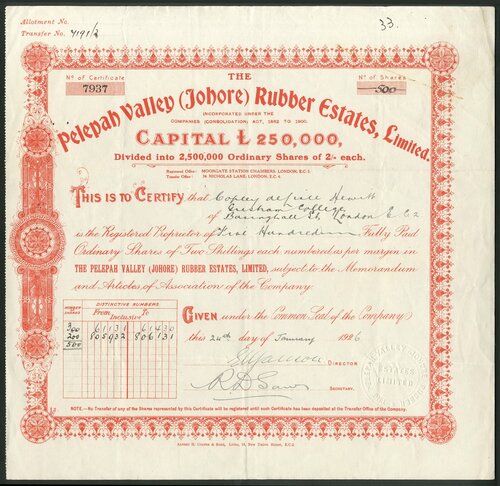 Allotment No.
Transfer No. 4191/2
33.
No of Certificate
7937
No of Shares
500
THE
Pelepah Valley (Johore) Rubber Estates, Limited.
INCORPORATED UNDER THE
COMPANIES (CONSOLIDATION) ACT, 1862 TO 1900.
CAPITAL £250,000,
Divided into 2,500,000 Ordinary Shares of 2/- each.
Registered Office: MOORGATE STATION CHAMBERS, LONDON, E.C.2.
Transfer Office: 24 NICHOLAS LANE, LONDON, E.C.4.
THIS IS TO CERTIFY that Copley Hewitt
Gresham College
of Basinghall St, London E.C.2
is the Registered Proprietor of Five Hundred Fully Paid
Ordinary Shares of Two Shillings each numbered as per margin in
THE PELEPAH VALLEY (JOHORE) RUBBER ESTATES, LIMITED, subject to the Memorandum
and Articles of Association of the Company.
NUMBER OF SHARES
DISTINCTIVE NUMBERS
From To
Inclusive
300 61131 61430
200 805932 806131
500
GIVEN under the Common Seal of the Company
this 24th day of January 1926
DIRECTOR
SECRETARY.
ESTATES
LIMITED
NOTE.—No Transfer of any of the Shares represented by this Certificate will be registered until such Certificate has been deposited at the Transfer Office of the Company.